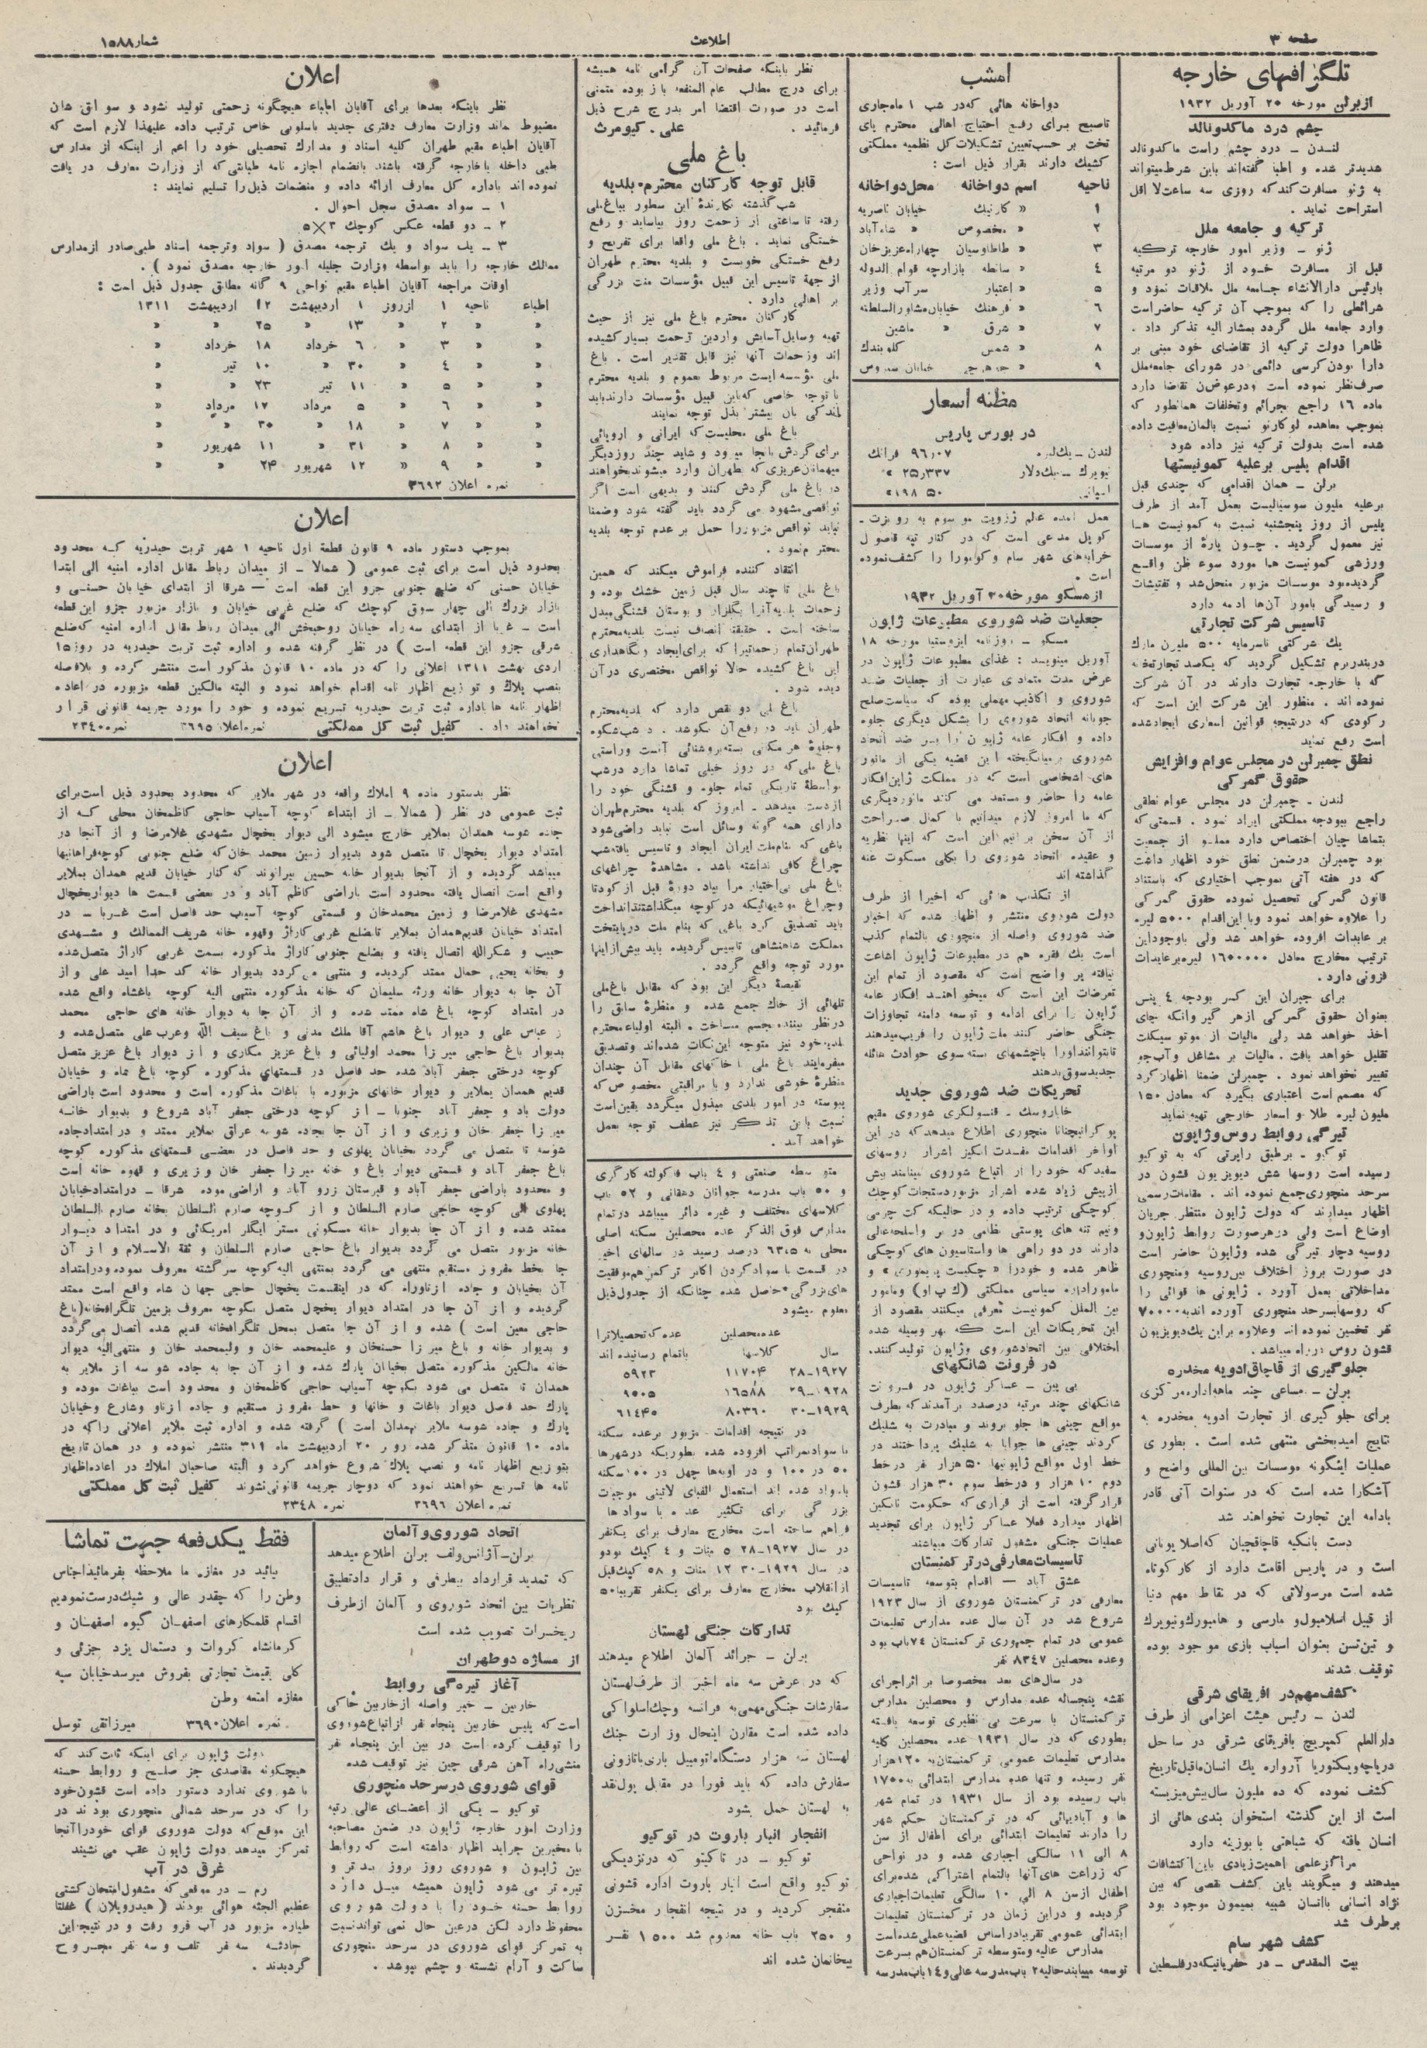 صفحه ۳
اطلاعات
شماره ۱۵۸۸
تلگرافهای خارجه
از برلن مورخه ۲۰ آوریل ۱۹۳۲
چشم درد ماکدونالد
لندن – درد چشم راست ماکدونالد
شدیدتر شده و اطبا گفته‌اند باین شرط میتواند
به ژنو مسافرت کند که روزی سه ساعت لااقل
استراحت نماید .
ترکیه و جامعه ملل
ژنو – وزیر امور خارجه ترکیه
قبل از مسافرت خود از ژنو دو مرتبه
بارئیس دارالانشاء جامعه ملل ملاقات نمود و
شرائطی را که بموجب آن ترکیه حاضر است
وارد جامعه ملل گردد بمشار الیه تذکر داد .
ظاهرا دولت ترکیه از تقاضای خود مبنی بر
دارا بودن کرسی دائمی در شورای جامعه ملل
صرف نظر نموده است و در عوض تقاضا دارد
ماده ۱۶ راجع بجرائم و تخلفات همانطور که
بموجب معاهده لوکارنو نسبت بالمان معافیت داده
شده است بدولت ترکیه نیز داده شود
اقدام پلیس بر علیه کمونیستها
برلن – همان اقدامی که چندی قبل
بر علیه ملیون سوسیالیست بعمل آمد از طرف
پلیس از روز پنجشنبه نسبت به کمونیست ها
نیز معمول گردید . چون پارهٔ از موسسات
ورزشی کمونیست ها مورد سوء ظن واقع
گردیده بود موسسات مزبور منحل شد و تفتیشات
و رسیدگی بامور آن‌ها ادامه دارد
تاسیس شرکت تجارتی
یک شرکتی باسرمایه ۵۰۰ ملیون مارک
در بندر برم تشکیل گردید که یکصد تجارتخانه
که با خارجه تجارت دارند در آن شرکت
نموده اند . منظور این شرکت این است که
رکودی که در نتیجه قوانین اسعاری ایجاد شده
است رفع نماید
نطق چمبرلن در مجلس عوام و افزایش
حقوق گمرکی
لندن – چمبرلن در مجلس عوام نطقی
راجع ببودجه مملکتی ایراد نمود . قسمتی که
بتماشا چیان اختصاص دارد مملو از جمعیت
بود چمبرلن در ضمن نطق خود اظهار داشت
که در هفته آتی بموجب اختیاری که باستناد
قانون گمرکی تحصیل نموده حقوق گمرکی
را علاوه خواهد نمود و باین اقدام ۵۰۰۰ لیره
بر عایدات افزوده خواهد شد ولی با وجود این
ترتیب مخارج معادل ۱۶۵۰۰۰۰ لیره بر عایدات
فزونی دارد .
برای جبران این کسر بودجه ۴ پنس
بعنوان حقوق گمرکی از هر گیروانکه چای
اخذ خواهد شد ولی مالیات از موتو سیکلت
تقلیل خواهد یافت . مالیات بر مشاغل و آب جو
تغییر نخواهد نمود . چمبرلن ضمنا اظهار کرد
که مصمم است اعتباری بگیرد که معادل ۱۵۰
ملیون لیره طلا و اسعار خارجی تهیه نماید
تیرگی روابط روس و ژاپون
توکیو – بر طبق راپرتی که به توکیو
رسیده است روسها شش دیویزیون قشون در
سرحد منچوری جمع نموده اند . مقامات رسمی
اظهار میدارند که دولت ژاپون منتظر جریان
اوضاع است ولی در هر صورت روابط ژاپون و
روسیه دچار تیرگی شده و ژاپون حاضر است
در صورت بروز اختلاف بین روسیه و منچوری
مداخلاتی بعمل آورد . ژاپونی ها قوائی را
که روسها بسرحد منچوری آورده اند به ۷۰۰۰۰
نفر تخمین نموده اند و علاوه بر این یک دیویزیون
قشون روس در راه میباشد .
جلوگیری از قاچاق ادویه مخدره
برلن – مساعی چند ماهه اداره مرکزی
برای جلوگیری از تجارت ادویه مخدره به
نتایج امیدبخشی منتهی شده است . بطوری
عملیات اینگونه موسسات بین المللی واضح و
آشکارا شده است که در سنوات آتی قادر
بادامه این تجارت نخواهند شد
دست بانکیه قاچاقچیان که اصلا یونانی
است و در پاریس اقامت دارد از کار کوتاه
شده است مرسولاتی که در نقاط مهم دنیا
از قبیل اسلامبول و مارسی و هامبورگ و نیویورک
و تین تسن بعنوان اسباب بازی موجود بوده
توقیف شدند
کشف مهم در افریقای شرقی
لندن – رئیس هیئت اعزامی از طرف
دارالعلم کمبریج بافریقای شرقی در ساحل
دریاچه ویکتوریا آرواره یک انسان ماقبل تاریخ
کشف نموده که ده ملیون سال پیش میزیسته
است از این گذشته استخوان بندی هائی از
انسان یافته که شباهتی با بوزینه دارد
مراکز علمی اهمیت زیادی باین اکتشافات
میدهند و میگویند باین کشف نقصی که بین
نژاد انسانی باانسان شبیه بمیمون موجود بود
برطرف شد
کشف شهر سام
بیت المقدس – در حفریاتیکه در فلسطین
امشب
دواخانه هائی که در شب ۱ ماه جاری
تا صبح برای رفع احتیاج اهالی محترم پای
تخت بر حسب تعیین تشکیلات کل نظمیه مملکتی
کشیک دارند بقرار ذیل است :
ناحیه اسم دواخانه محل دواخانه
۱ « کارنیک خیابان ناصریه
۲ « مخصوص « شاه آباد
۳ « طاطاوسیان چهارراه عزیزخان
۴ « سانطه بازارچه قوام الدوله
۵ « اعتبار سر آب وزیر
۶ « فرهنگ خیابان مشاور السلطنه
۷ « شرق « ماشین
۸ « شمس کلوبندک
۹ « جوهرچی خیابان سیروس
مظنه اسعار
در بورس پاریس
لندن – یک لیره ۹۶٫۰۷ فرانک
نیویرک – یک دلار ۲۵٫۳۳۷ «
اسپانی ۱۹۸ ۵۰ «
عمل آمده عالم ژزویت موسوم به روبرت –
کوپل مدعی است که در کنار تپه قاصول
خرابه‌های شهر سام و کومورا را کشف نموده
است .
از مسکو مورخه ۲۰ آوریل ۱۹۳۲
جعلیات ضد شوروی مطبوعات ژاپون
مسکو – روزنامه ایزوستیا مورخه ۱۸
آوریل مینویسد : غذای مطبوعات ژاپون در
عرض مدت متمادی عبارت از جعلیات ضد
شوروی و اکاذیب مهملی بوده که سیاست صلح
جویانه اتحاد شوروی را بشکل دیگری جلوه
داده و افکار عامه ژاپون را بر ضد اتحاد
شوروی برمیانگیخته این قضیه یکی از مانور
های اشخاصی است که در مملکت ژاپن افکار
عامه را حاضر و مستعد می کنند مانور دیگری
که ما امروز لازم میدانیم با کمال صراحت
از آن سخن برانیم این است که اینها نظریه
و عقیده اتحاد شوروی را بکلی مسکوت عنه
گذاشته اند
از تکذیب هائی که اخیرا از طرف
دولت شوروی منتشر و اظهار شده که اخبار
ضد شوروی واصله از منچوری بالتمام کذب
است یک فقره هم در مطبوعات ژاپون اشاعت
نیافته پر واضح است که مقصود از تمام این
تعرضات این است که میخواهند افکار عامه
ژاپون را برای ادامه و توسعه دامنه تجاوزات
جنگی حاضر کنند ملت ژاپون را فریب میدهند
تا بتوانند او را با چشمهای بسته سوی حوادث هائله
جدید سوق بدهند
تحریکات ضد شوروی جدید
خاباروسک – قنسولگری شوروی مقیم
پوگرانیچنایا منچوری اطلاع میدهد که در این
اواخر اقدامات مفسدت انگیز اشرار روسهای
سفید که خود را از اتباع شوروی مینامند بیش
از پیش زیاد شده اشرار مزبور دستجات کوچک
کوچکی ترتیب داده و در حالیکه کت چرمی
و نیم تنه های پوستی نظامی در بر و اسلحه عالی
دارند در دو راهی ها و استاسیون های کوچکی
ظاهر شده و خود را « چکیست پریموری » و
مامور اداره سیاسی مملکتی (ک پ او) و مامور
بین الملل کمونیست معرفی میکنند مقصود از
این تحریکات این است که بهر وسیله شده
اختلافی بین اتحاد شوروی و ژاپون تولید کنند .
در فرونت شانگهای
بی پین – عساکر ژاپون در فرونت
شانگهای چند مرتبه در صدد برآمدند که بطرف
مواقع چینی ها جلو بروند و مبادرت به شلیک
کردند چینی ها جوابا به شلیک پرداختند در
خط اول مواقع ژاپونیها ۵۰ هزار نفر در خط
دوم ۱۰ هزار و در خط سوم ۳۰ هزار قشون
قرار گرفته است از قراری که حکومت نانکین
اظهار میدارد فعلا عساکر ژاپون برای تجدید
عملیات جنگی مشغول تدارکات میباشند
تاسیسات معارفی در ترکمنستان
عشق آباد – اقدام بتوسعه تاسیسات
معارفی در ترکمنستان شوروی از سال ۱۹۲۳
شروع شد در آن سال عده مدارس تعلیمات
عمومی در تمام جمهوری ترکمنستان ۷۴ باب بود
و عده محصلین ۸۳۴۷ نفر
در سال‌های بعد مخصوصا بر اثر اجرای
نقشه پنجساله عده مدارس و محصلین مدارس
ترکمنستان با سرعت بی نظیری توسعه یافته
بطوری که در سال ۱۹۳۱ عده محصلین کلیه
مدارس تعلیمات عمومی ترکمنستان به ۱۲۰ هزار
نفر رسیده و تنها عده مدارس ابتدائی به ۱۷۰۰
باب رسیده بود از سال ۱۹۳۱ در تمام شهر
ها و آبادیهائی که در ترکمنستان حکم شهر
را دارند تعلیمات ابتدائی برای اطفال از سن
۸ الی ۱۱ سالگی اجباری شده و در نواحی
که زراعت های آنها بالتمام اشتراکی شده برای
اطفال از سن ۸ الی ۱۰ سالگی تعلیمات اجباری
گردیده و در این زمان در ترکمنستان تعلیمات
ابتدائی عمومی تقریبا در اساس قضیه عملی شده است
مدارس عالیه و متوسطه ترکمنستان هم بسرعت
توسعه مییابند حالیه ۲ باب مدرسه عالی و ۱۴ باب مدرسه
نظر باینکه صفحات آن گرامی نامه همیشه
برای درج مطالب عام المنفعه باز بوده متمنی
است در صورت اقتضا امر بدرج شرح ذیل
فرمائید . علی . کیومرث
باغ ملی
قابل توجه کارکنان محترم بلدیه
شب گذشته نگارندهٔ این سطور بباغ ملی
رفته تا ساعتی از زحمت روز بیاساید و رفع
خستگی نماید . باغ ملی واقعا برای تفریح و
رفع خستگی خوبست و بلدیه محترم طهران
از جهة تاسیس این قبیل مؤسسات منت بزرگی
بر اهالی دارد .
کارکنان محترم باغ ملی نیز از حیث
تهیه وسایل آسایش واردین زحمت بسیار کشیده
اند و زحمات آنها نیز قابل تقدیر است . باغ
ملی مؤسسه ایست مربوط بعموم و بلدیه محترم
با توجه خاصی که باین قبیل مؤسسات دارند باید
اندکی بآن بیشتر بذل توجه نمایند
باغ ملی محلیست که ایرانی و اروپائی
برای گردش بآنجا میرود و شاید چند روز دیگر
میهمانان عزیزی که بطهران وارد میشوند بخواهند
در باغ ملی گردش کنند و بدیهی است اگر
نواقصی مشهود می گردد باید گفته شود و ضمنا
نباید نواقص مزبور را حمل بر عدم توجه بلدیه
محترم نمود .
انتقاد کننده فراموش میکند که همین
باغ ملی تا چند سال قبل زمین خشک بوده و
زحمات بلدیه آنرا بگلزار و بوستان قشنگی مبدل
ساخته است . حقیقة انصاف نیست بلدیه محترم
طهران تمام زحماتیرا که برای ایجاد و نگاهداری
این باغ کشیده حالا نواقص مختصری در آن
دیده شود .
باغ ملی دو نقص دارد که بلدیه محترم
طهران باید در رفع آن بکوشد . در شب شکوه
و جلوهٔ هر مکانی بسته بروشنائی آنست و راستی
باغ ملی که در روز خیلی تماشا دارد در شب
بواسطهٔ تاریکی تمام جلوه و قشنگی خود را
از دست میدهد . امروز که بلدیه محترم طهران
دارای همه گونه وسائل است نباید راضی شود
باغی که بنام ملت ایران ایجاد و تاسیس یافته شب
چراغ کافی نداشته باشد . مشاهدهٔ چراغهای
باغ ملی بی اختیار مرا بیاد دورهٔ قبل از کودتا
و چراغ موشیهائیکه در کوچه میگذاشتند انداخت
باید تصدیق کرد باغی که بنام ملت در پایتخت
مملکت شاهنشاهی تاسیس گردیده باید بیش از اینها
مورد توجه واقع گردد .
نقیصهٔ دیگر این بود که مقابل باغ ملی
تلهائی از خاک جمع شده و منظرهٔ سابق را
در نظر بیننده مجسم میساخت . البته اولیاء محترم
بلدیه خود نیز متوجه این نکات شده‌اند و تصدیق
میفرمایند باغ ملی با خاکهای مقابل آن چندان
منظرهٔ خوشی ندارد و با مراقبتی مخصوص که
پیوسته در امور بلدی مبذول میگردد یقین است
نسبت باین تذکر نیز عطف توجه بعمل
خواهد آمد .
متوسطه صنعتی و ۴ باب فاکولته کارگری
و ۵۰ باب مدرسه جوانان دهقانی و ۵۲ باب
کلاسهای مختلف و غیره دائر میباشد در تمام
مدارس فوق الذکر عده محصلین سکنه اصلی
محلی به ۶۳٫۵ درصد رسید در سالهای اخیر
در قسمت با سواد کردن اکابر ترکمن هم موفقیت
های بزرگی حاصل شده چنانکه از جدول ذیل
معلوم میشود
عده محصلین عده که تحصیلاترا
سال کلاسها باتمام رسانیده اند
۱۹۲۷–۲۸ ۱۱۷۰۴ ۵۹۲۳
۱۹۲۸–۲۹ ۱۶۵۸۸ ۹۵۰۵
۱۹۲۹–۳۰ ۸۰۳۶۰ ۶۱۴۴۵
در نتیجه اقدامات مزبور بر عده سکنه
با سواد بمراتب افزوده شده بطوریکه در شهرها
۵۰ در ۱۰۰ و در اوبه‌ها چهل در ۱۰۰ سکنه
باسواد شده اند استعمال الفبای لاتینی موجبات
بزرگی برای تکثیر عده با سوادها
فراهم ساخته است مخارج معارف برای یکنفر
در سال ۱۹۲۷–۲۸ ۵ منات و ۴ کپک بود و
در سال ۱۹۲۹–۳۰ ۱۲ منات و ۵۸ کپک قبل
از انقلاب مخارج معارف برای یکنفر تقریبا ۵۰
کپک بود
تدارکات جنگی لهستان
برلن – جرائد آلمان اطلاع میدهند
که در عرض سه ماه اخیر از طرف لهستان
سفارشات جنگی مهمی به فرانسه و چک اسلواکی
داده شده است مقارن اینحال وزارت جنگ
لهستان سه هزار دستگاه اتومبیل باری باتازونی
سفارش داده که باید فورا در مقابل پول نقد
به لهستان حمل بشود
انفجار انبار باروت در توکیو
توکیو – در تاکیتو که در نزدیکی
توکیو واقع است انبار باروت اداره قشونی
منفجر گردید و در نتیجه انفجار مخزن
و ۲۵۰ باب خانه معدوم شد ۱۵۰۰ نفر
بیخانمان شده اند
اعلان
نظر باینکه بعدها برای آقایان اطباء هیچگونه زحمتی تولید نشود و سوابق شان
مضبوط بماند وزارت معارف دفتری جدید باسلوبی خاص ترتیب داده علیهذا لازم است که
آقایان اطباء مقیم طهران کلیه اسناد و مدارک تحصیلی خود را اعم از اینکه از مدارس
طبی داخله یا خارجه گرفته باشند بانضمام اجازه نامه طبابتی که از وزارت معارف در یافت
نموده اند باداره کل معارف ارائه داده و منضمات ذیل را تسلیم نمایند :
۱ – سواد مصدق سجل احوال .
۲ – دو قطعه عکس کوچک ۳×۵
۳ – یک سواد و یک ترجمه مصدق ( سواد و ترجمه اسناد طبی صادر از مدارس
ممالک خارجه را باید بواسطه وزارت جلیله امور خارجه مصدق نمود ) .
اوقات مراجعه آقایان اطباء مقیم نواحی ۹ گانه مطابق جدول ذیل است :
اطباء ناحیه ۱ از روز ۱ اردیبهشت تا ۱۲ اردیبهشت ۱۳۱۱
« « ۲ « ۱۳ « ۲۵ « «
« « ۳ « ۶ خرداد ۱۸ خرداد «
« « ۴ « ۳۰ « ۱۰ تیر «
« « ۵ « ۱۱ تیر ۲۳ « «
« « ۶ « ۵ مرداد ۱۷ مرداد «
« « ۷ « ۱۸ « ۳۰ « «
« « ۸ « ۳۱ « ۱۱ شهریور «
« « ۹ « ۱۲ شهریور ۲۴ « «
نمره اعلان ۳۶۹۲
اعلان
بموجب دستور ماده ۹ قانون قطعه اول ناحیه ۱ شهر تربت حیدریه که محدود
بحدود ذیل است برای ثبت عمومی ( شمالا – از میدان رباط مقابل اداره امنیه الی ابتدا
خیابان حسنی که ضلع جنوبی جزو این قطعه است – شرقا از ابتدای خیابان حسنی و
بازار بزرگ الی چهار سوق کوچک که ضلع غربی خیابان و بازار مزبور جزو این قطعه
است – غربا از ابتدای سه راه خیابان روحبخش الی میدان رباط مقابل اداره امنیه که ضلع
شرقی جزو این قطعه است ) در نظر گرفته شده و اداره ثبت تربت حیدریه در روز ۱۵
اردی بهشت ۱۳۱۱ اعلانی را که در ماده ۱۰ قانون مذکور است منتشر کرده و بلافاصله
بنصب پلاک و توزیع اظهار نامه اقدام خواهد نمود و البته مالکین قطعه مزبوره در اعاده
اظهار نامه ها باداره ثبت تربت حیدریه تسریع نموده و خود را مورد جریمه قانونی قرار
نخواهند داد . کفیل ثبت کل مملکتی نمره اعلان ۳۶۹۵ نمره ۲۳۴۰
اعلان
نظر بدستور ماده ۹ املاک واقعه در شهر ملایر که محدود بحدود ذیل است برای
ثبت عمومی در نظر ( شمالا – از ابتداء کوچه آسیاب حاجی کاظمخان محلی که از
جاده شوسه همدان بملایر خارج میشود الی دیوار یخچال مشهدی غلامرضا و از آنجا در
امتداد دیوار یخچال تا متصل شود بدیوار زمین محمد خان که ضلع جنوبی کوچه فراهانیها
میباشد گردیده و از آنجا بدیوار خانه حسین بیرانوند که کنار خیابان قدیم همدان بملایر
واقع است اتصال یافته محدود است باراضی کاظم آباد و در بعضی قسمت ها دیوار یخچال
مشهدی غلامرضا و زمین محمدخان و قسمتی کوچه آسیاب حد فاصل است غربا – در
امتداد خیابان قدیم همدان بملایر تا ضلع غربی کاراژ و قهوه خانه شریف الممالک و مشهدی
حبیب و شکرالله اتصال یافته و بضلع جنوبی کاراژ مذکوره بسمت غربی کاراژ متصل شده
و بخانه یحیی حمال ممتد گردیده و منتهی می گردد بدیوار خانه کد خدا امید علی و از
آن جا به دیوار خانه ورثه سلیمان که خانه مذکوره منتهی الیه کوچه باغشاه واقع شده
در امتداد کوچه باغ شاه ممتد شده و از آن جا به دیوار خانه های حاجی محمد
و عباس علی و دیوار باغ هاشم آقا ملک مدنی و باغ سیف الله و عرب علی متصل شده و
بدیوار باغ حاجی میرزا محمد اولیائی و باغ عزیز مکاری و از دیوار باغ عزیز متصل
کوچه درختی جعفر آباد شده حد فاصل در قسمتهای مذکوره کوچه باغ شاه و خیابان
قدیم همدان بملایر و دیوار خانهای مزبوره با باغات مذکوره است و محدود است باراضی
دولت باد و جعفر آباد جنوبا – از کوچه درختی جعفر آباد شروع و بدیوار خانه
میرزا جعفر خان وزیری و از آن جا بجاده شوسه عراق بملایر ممتد و در امتداد جاده
شوسه تا متصل می گردد بخیابان پهلوی و حد فاصل در بعضی قسمتهای مذکوره کوچه
باغ جعفر آباد و قسمتی دیوار باغ و خانه میرزا جعفر خان وزیری و قهوه خانه است
و محدود باراضی جعفر آباد و قبرستان زرو آباد و اراضی موده شرقا – در امتداد خیابان
پهلوی الی کوچه حاجی صارم السلطان و از کوچه صارم السلطان بخانه صارم السلطان
ممتد شده و از آن جا بدیوار خانه مسکونی مستر ایگلر امریکائی و در امتداد دیوار
خانه مزبور متصل می گردد بدیوار باغ حاجی صارم السلطان و ثقة الاسلام و از آن
جا بخط مفروز مستقیم منتهی می گردد بمنتهی الیه کوچه سرگشته معروف نموده و در امتداد
آن بخیابان و جاده ازناوراه که در اینقسمت یخچال حاجی جهان شاه واقع است ممتد
گردیده و از آن جا در امتداد دیوار یخچال متصل بکوچه معروف بزمین تلگرافخانه (باغ
حاجی معین است ) شده و از آن جا متصل بمحل تلگرافخانه قدیم شده اتصال می گردد
و بدیوار خانه و باغ میرزا حسنخان و علیمحمد خان و ولیمحمد خان و منتهی الیه دیوار
خانه مالکین مذکوره متصل بخیابان پارک شده و از آن جا به جاده شوسه از ملایر به
همدان تا متصل می شود بکوچه آسیاب حاجی کاظمخان و محدود است بباغات موده و
پارک حد فاصل دیوار باغات و خانها و خط مفروز مستقیم و جاده ازناو و شارع و خیابان
پارک و جاده شوسه ملایر بهمدان است ) گرفته شده و اداره ثبت ملایر اعلانی را که در
ماده ۱۰ قانون متذکر شده روز ۲۰ اردیبهشت ماه ۳۱۱ منتشر نموده و در همان تاریخ
بتوزیع اظهار نامه و نصب پلاک شروع خواهد کرد و البته صاحبان املاک در اعاده اظهار
نامه ها تسریع خواهند نمود که دوچار جریمه قانونی نشوند کفیل ثبت کل مملکتی
نمره اعلان ۳۶۹۶ نمره ۲۳۴۸
اتحاد شوروی و آلمان
برلن – آژانس ولف برلن اطلاع میدهد
که تمدید قرارداد بیطرفی و قرار داد تطبیق
نظریات بین اتحاد شوروی و آلمان از طرف
ریخسرات تصویب شده است
از مساژه دو طهران
آغاز تیره‌گی روابط
خاربین – خبر واصله از خاربین حاکی
است که پلیس خاربین پنجاه نفر از اتباع شوروی
را توقیف کرده است در بین این پنجاه نفر
منشی راه آهن شرقی چین نیز توقیف شده
قوای شوروی در سرحد منچوری
توکیو – یکی از اعضای عالی رتبه
وزارت امور خارجه ژاپون در ضمن مصاحبه
با مخبرین جراید اظهار داشته است که روابط
بین ژاپون و شوروی روز بروز بدتر و
تیره تر می شود ژاپون همیشه میل دارد
روابط حسنه خود را با دولت شوروی
محفوظ دارد لکن در عین حال نمی تواند نسبت
به تمرکز قوای شوروی در سرحد منچوری
ساکت و آرام نشسته و چشم بپوشد .
فقط یکدفعه جهت تماشا
بیائید در مغازه ما ملاحظه بفرمائید اجناس
وطن را که چقدر عالی و شیک درست نمودیم
اقسام قلمکارهای اصفهان گیوه اصفهان و
کرمانشاه کروات و دستمال یزد جزئی و
کلی بقیمت تجارتی بفروش میرسد خیابان سپه
مغازه امتعه وطن
نمره اعلان ۳۶۹۰ میرزا تقی توسل
دولت ژاپون برای اینکه ثابت کند که
هیچگونه مقاصدی جز صلح و روابط حسنه
با شوروی ندارد دستور داده است قشون خود
را که در سرحد شمالی منچوری بودند در
این موقع که دولت شوروی قوای خود را آنجا
تمرکز میدهد دولت ژاپون عقب می نشیند
غرق در آب
رم – در موقعی که مشغول امتحان کشتی
عظیم الجثه هوائی بودند ( هیدروپلان ) غفلتا
طیاره مزبور در آب فرو رفت و در نتیجه این
حادثه سه نفر تلف و سه نفر مجروح
گردیدند .